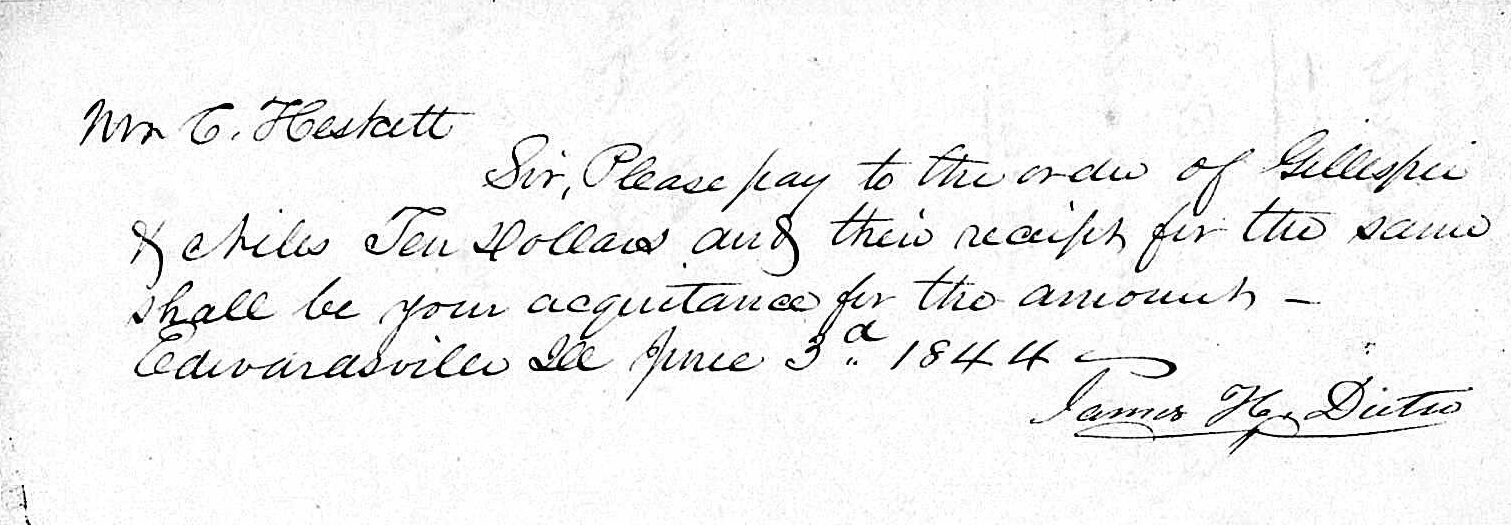 Mr C. Heskett
Sir, Please pay to the order of Gillespie
& Niles Ten Dollars and their receipt for the same
shall be your acquitance for the amount –
Edwardsville Ill June 3d 1844
James H.